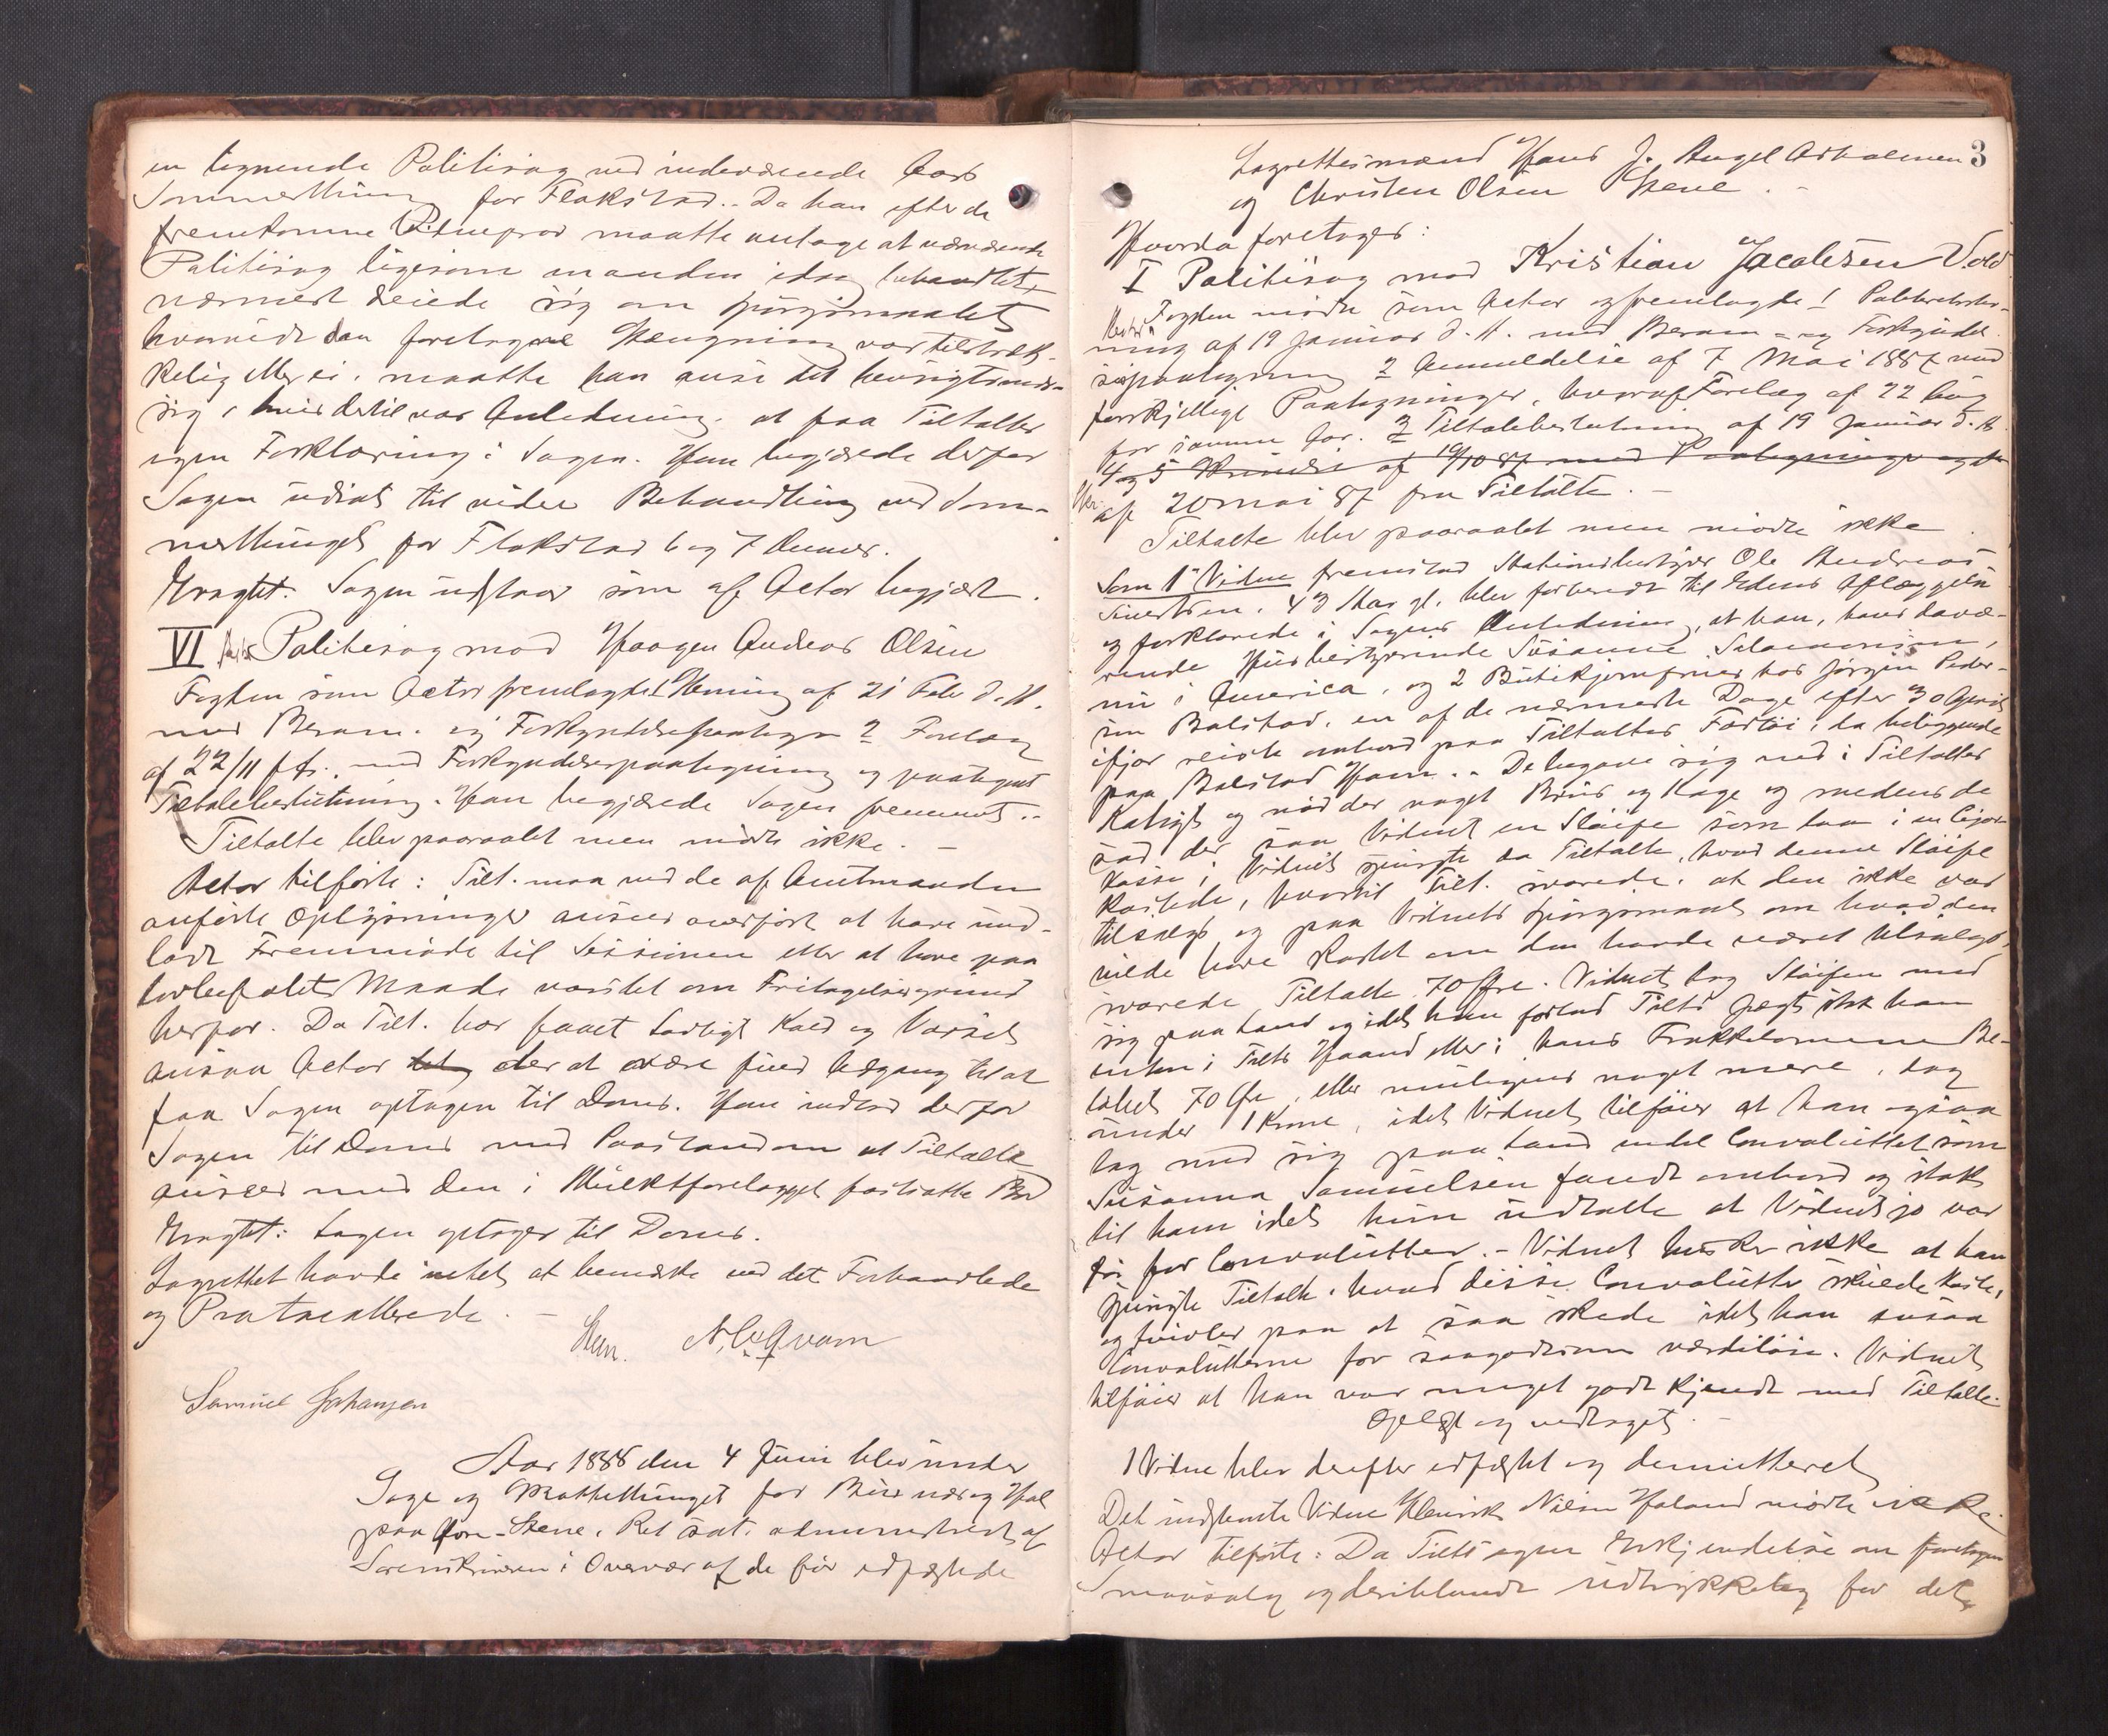 en lignende Politisag ved indeværende Aars
Sommerthing for Flakstad.. Da han efter de
fremkomne Vidneprov maatte antage at nærværende
Politisag ligesom manden idag behandlet,
nærmest dreiede sig om Spørgsmaalet
hvorvidt den foretagne Stængning var tilstræk-
kelig eller ei, maatte han anse det hensigtsmæs-
sig, hvis dertil var Anledning, at faa Tiltaltes
egen Forklaring i Sagen. Han begjærede derfor
Sagen udsat til videre Behandling ved Som-
merthinget for Flakstad 6 og 7 Juni.
Eragtet: Sagen udstaar som af Actor begjært.
VI Politisag mod Haagen Andreas Olsen
Fogden som Actor fremlagde 1 Stevning af 21 Febr d. A.
med Beram. og Forkyndelsespaategn 2 Forelæg
af 22/11 f. A. med Forkyndelsespaategning og paategnet
Tiltalebeslutning. Han begjærede Sagen fremmet..
Tiltalte blev paaraabt men mødte ikke. —
Actor tilførte: Tilt. maa ved de af Amtmanden
anførte Oplysninger ansees overført at have und-
ladt Fremmøde til Sessionen eller at have paa
lovbefalet Maade varslet om Fritagelsesgrund
herfor. Da Tilt. har faaet lovligt Kald og Varsel
ansaa Actor der at være fuld Adgang til at
faa Sagen optagen til Doms. Han indlod derfor
Sagen til Doms med Paastand om at Tiltalte
ansees med den i Mulktforelægget fastsatte Bod
Eragtet: Sagen optages til Doms.
Lagrettet havde intet at bemærke ved det Forhandlede
og Protocollerede. —
N. Qvam
Samuel Johansen
Aar 1888 den 4 Juni blev under
Sage og Skattethinget for Buxnæs og Hol
paa Gore-Stene, Ret sat, administreret af
Sorenskriveren i Overvær af de før edfæstede
3
Lagrettesmænd Hans J. Angel
og Christen Olsen Stene. -
Hvorda foretages:
I Politisag mod Kristian Jacobsen Vold
Fogden mødte som Actor og fremlagde 1
ning af 19 Januar d. A. med Beram- og Forkyndel-
sespaategning 2 Anmeldelse af 7 Mai 1887 med
forskjellige Paategninger, hvoraf Forelæg af 22 Aug
for samme Aar. 3 Tiltalebeslutning af 19 Januar d. A.
4 og 5 af 19/10 87 med Paategninger og
af 20 mai 87 fra Tiltalte. —
Tiltalte blev paaraabt men mødte ikke
Som 1ste Vidne fremstod Stationsbestyrer Ole Andreas
Sivertsen, 43 Aar gl. blev forberedt til Edens Aflæggelse
og forklarede i Sagens Anledning, at han, hans davæ-
rende Husbestyrerinde Susanne
nu i America, og 2 Butikjomfruer hos Jørgen Peder-
sen Balstad, en af de nærmeste Dage efter 30 April
ifjor reiste ombord paa Tiltaltes Fartøi, da beliggende
paa Balstad Havn.. De begave sig ned i Tiltaltes
Kahyt og nød der noget Brus og Kage og medens de
sad der saa Vidnet en Sløife som laa i en Cigar-
kasse; Vidnet spurgte da Tiltalte, hvad denne Sløife
kostede, hvortil Tilt. svarede, at den ikke var
tilsalgs og paa Vidnets Spørgsmaal om hvad den
vilde have kostet om den havde været tilsalgs,
svarede Tiltalte 70 Øre. Vidnet tog Sløifen med
sig paa land og idet han forlod Tilts Jægt stak han
enten i Tilts Haand eller i hans Frakkelomme Be-
løbet 70 Øre, eller muligens noget mere, dog
under 1 Krone, idet Vidnet tilføier at han ogsaa
tog med sig paa land endel Convolutter som
Susanna Samuelsen fandt ombord og stak
til ham idet hun udtalte at Vidnet jo var
for Convolutter. - Vidnet husker ikke at han
spurgte Tiltalte, hvad disse Convolutter skulde koste,
og tvivler paa at saa skede idet han ansaa
Convolutterne for saagodtsom værdiløse. Vidnet
tilføier at han var meget godt kjendt med Tiltalte.
Oplæst og vedtaget. -
1 Vidne blev derefter edfæstet og demitteret
Det indstevnte Vidne Henrik Nilsen Haland mødte ikke
Actor tilførte: Da Tilts egen Erkjendelse om foretagen
Smaasalg og deriblandt udtrykkelig for det